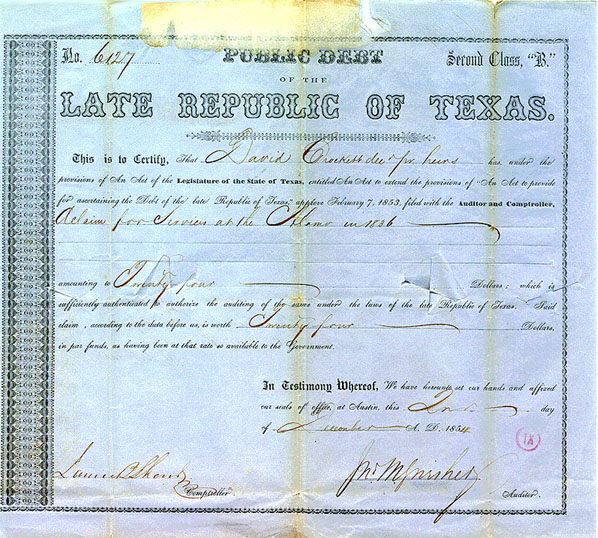 No. 6127 PUBLIC DEBT Second Class, "B"
OF THE
LATE REPUBLIC OF TEXAS.
This is to Certify, That David Crockett decd pr heirs has, under the
provisions of An Act of the Legislature of the State of Texas, entitled An Act to extend the provisions of "An Act to provide
for ascertaining the Debt of the late Republic of Texas," approve February 7, 1853, filed with the Auditor and Comptroller,
A claim for Services at the Alamo in 1836
amounting to Twenty four Dollars; which is
sufficiently authenticated to authorize the auditing of the same under the laws of the late Republic of Texas. Said
claim, according to the data before us, is worth Twenty four Dollars,
in par funds, as having been at that rate so available to the Government.
In Testimony Whereof, We have hereunto set our hands and affixed
our seals of office, at Austin, this day
of December A. D. 1854
Comptroller. Auditor.